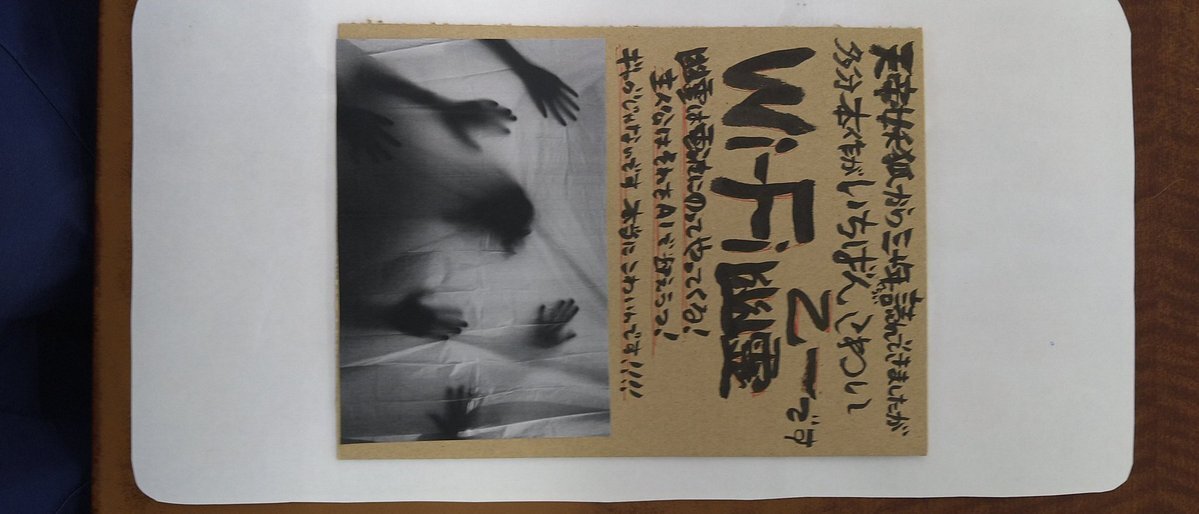 天帝妖狐から読んできましたが
多分本作がいちばんこわい
乙一です
Wi-Fi幽霊
幽霊は電波にのってやってくる!
主人公はそれをAIで迎えうつ!
ギャグじゃないです 本当にこわいんです!!!!